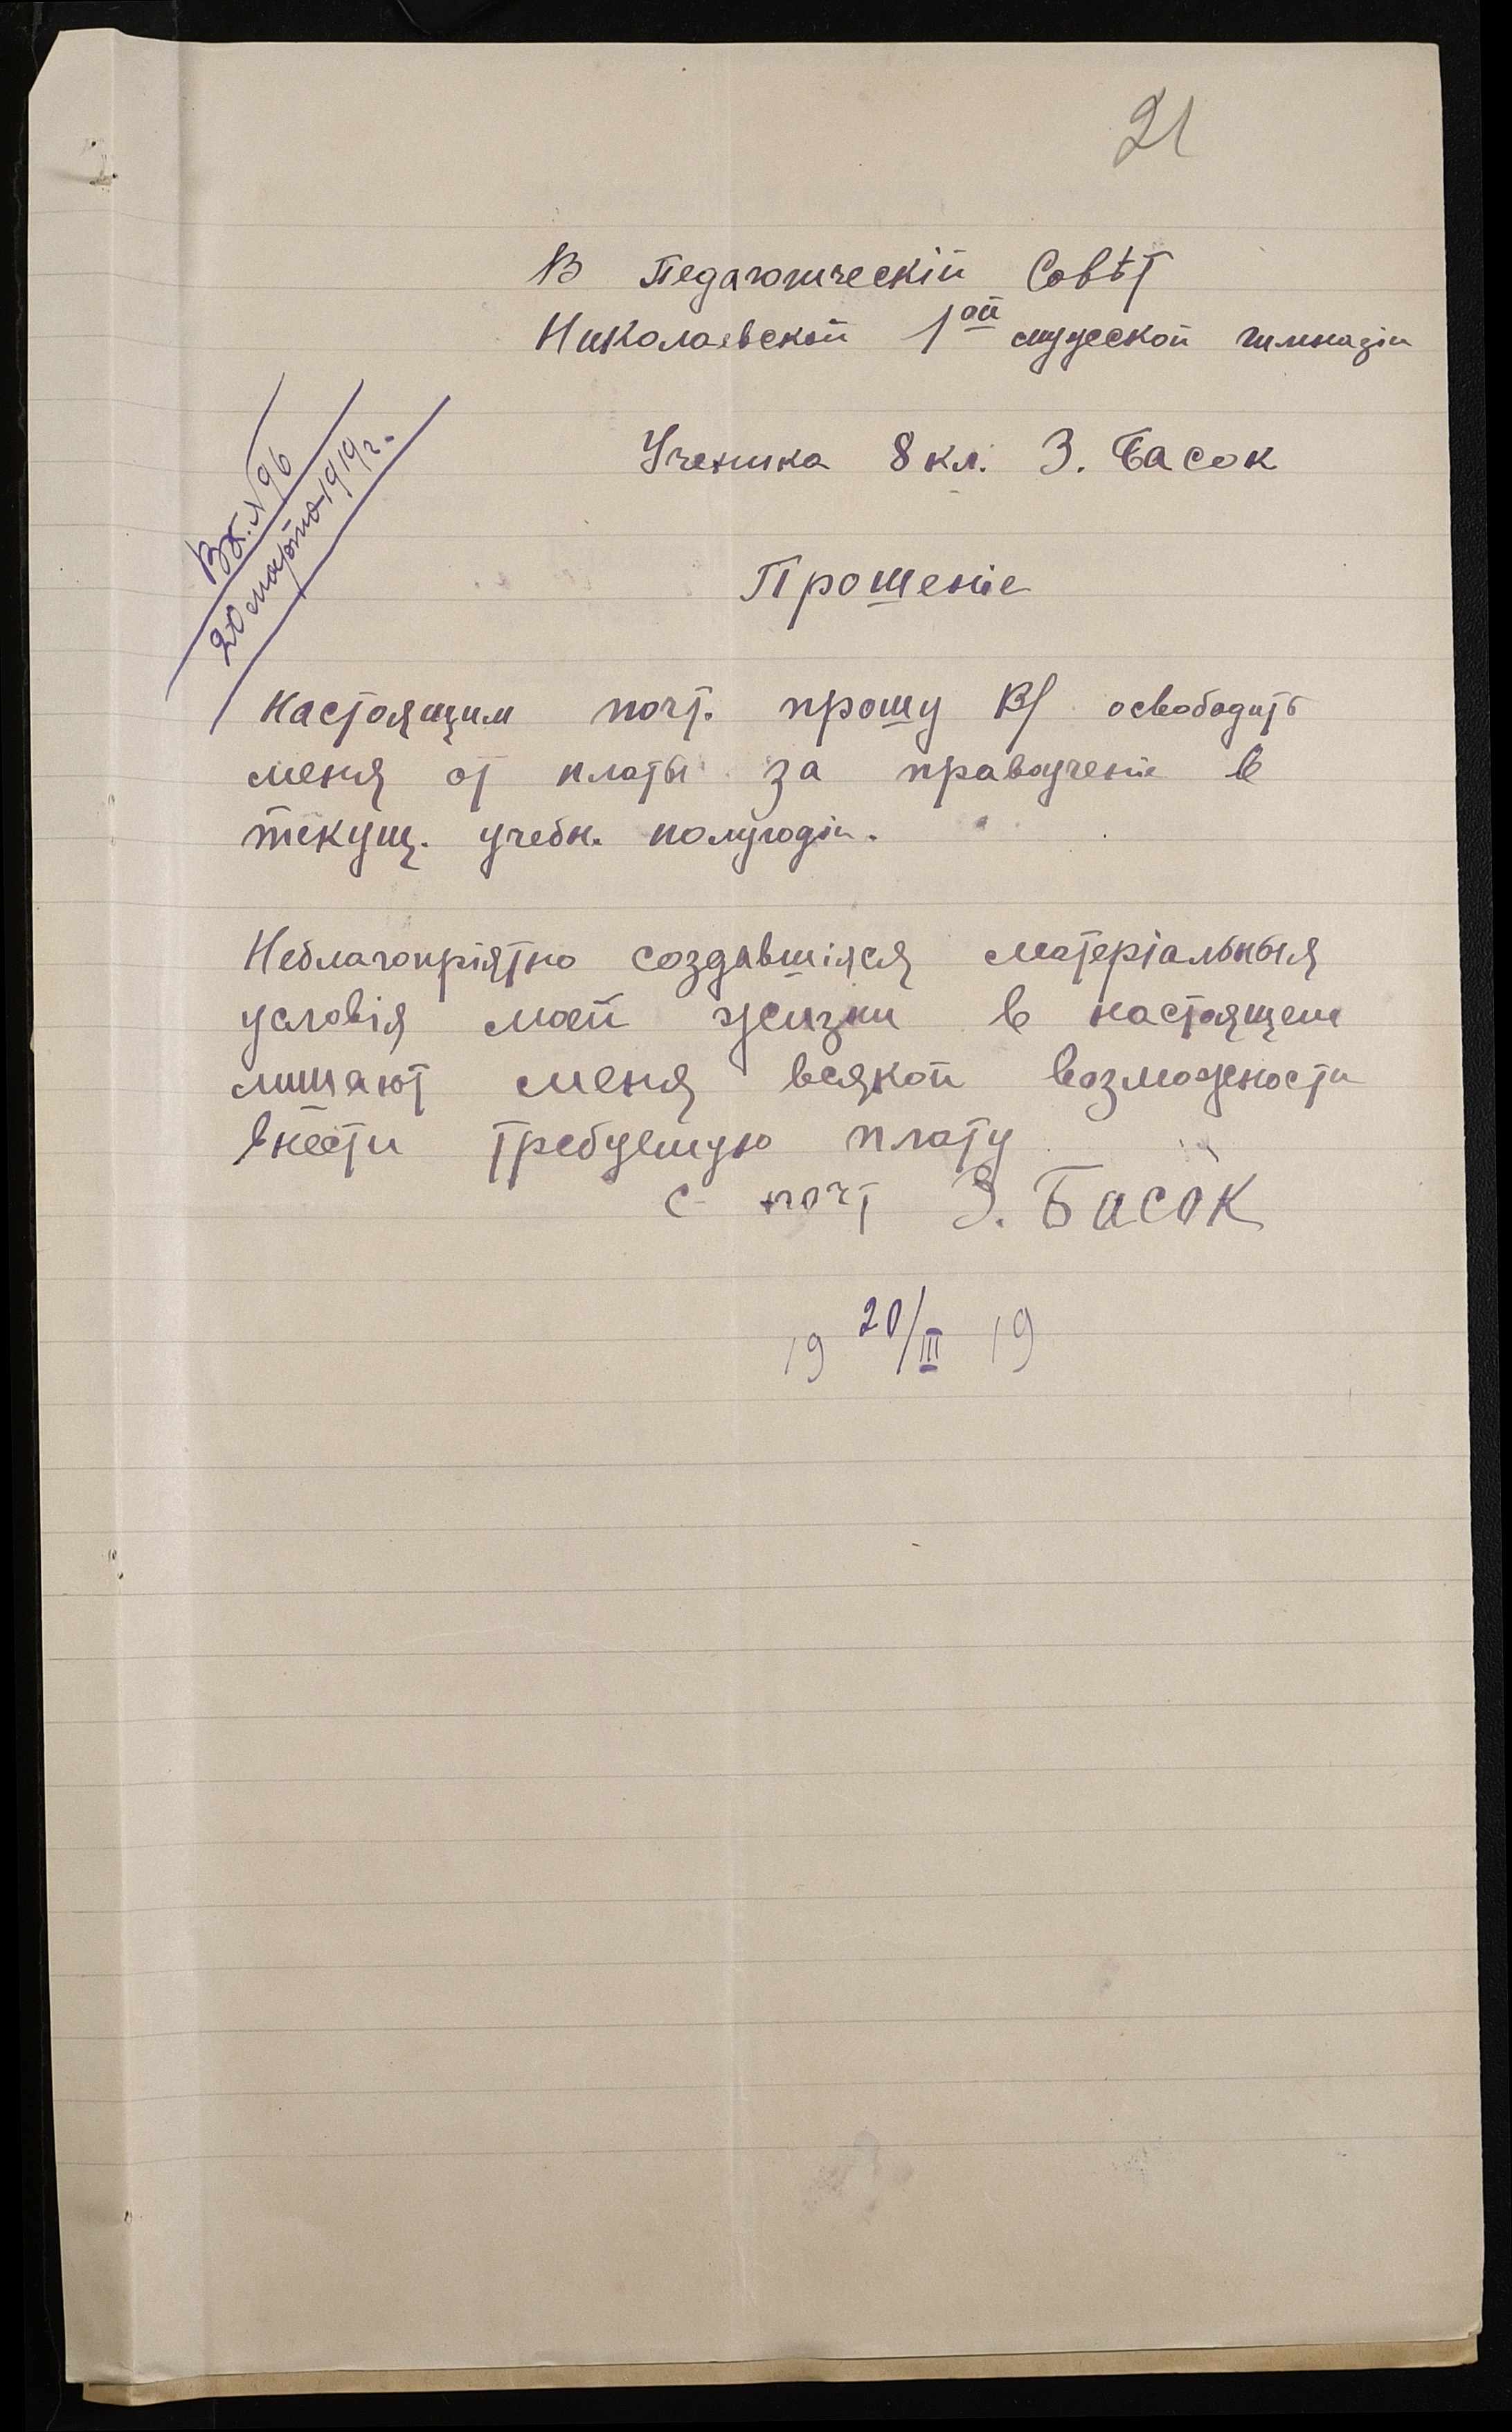 21
В Педагогическій Совѣт
Николаевской 1ой мужской гимназіи
Ученика 8 кл. З. Басок
Вх. № 96
20 марта 1919 г.
Прошеніе
Настоящим почт. прошу освободить
меня от платы за правоученіе в
текущ. учебн. полугодіи.
Неблагопріятно создавшіяся матеріальныя
условія моей жизни в настоящем
лишают меня всякой возможности
внести требуемую плату
с почт З. Басок
19 20/III 19